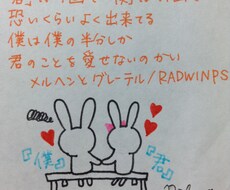 恐いくらいよく出来てる
僕は僕の半分しか
君のことを愛せないのかい
メルヘンとグレーテル/RADWINPS
『僕』
『君』